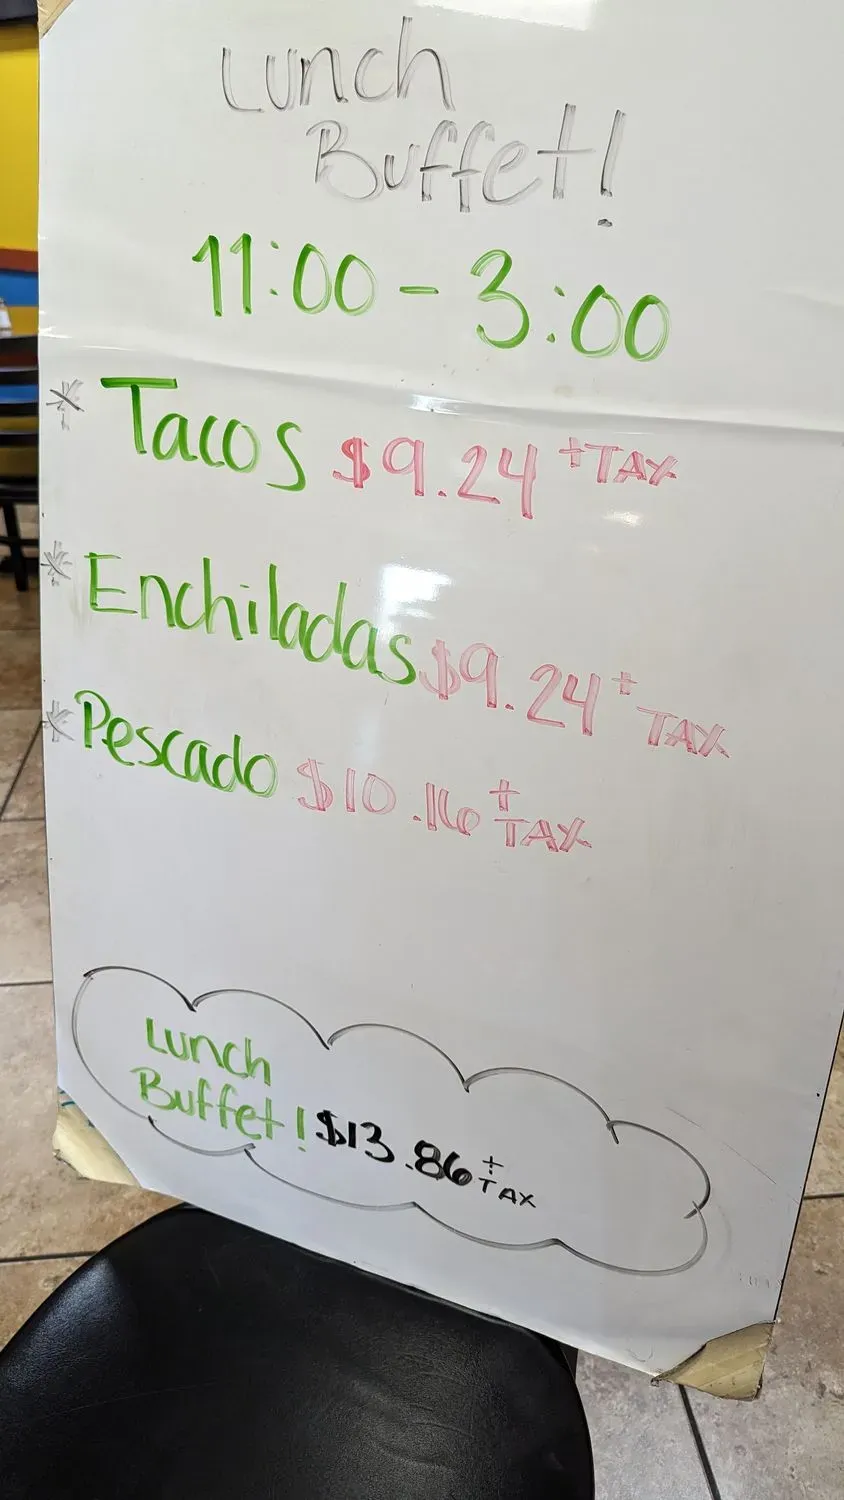 Lunch
Buffet!
11:00 - 3:00
* Tacos $9.24 + TAX
* Enchiladas $9.24 + TAX
* Pescado $10.16 + TAX
Lunch
Buffet! $13.86 + TAX